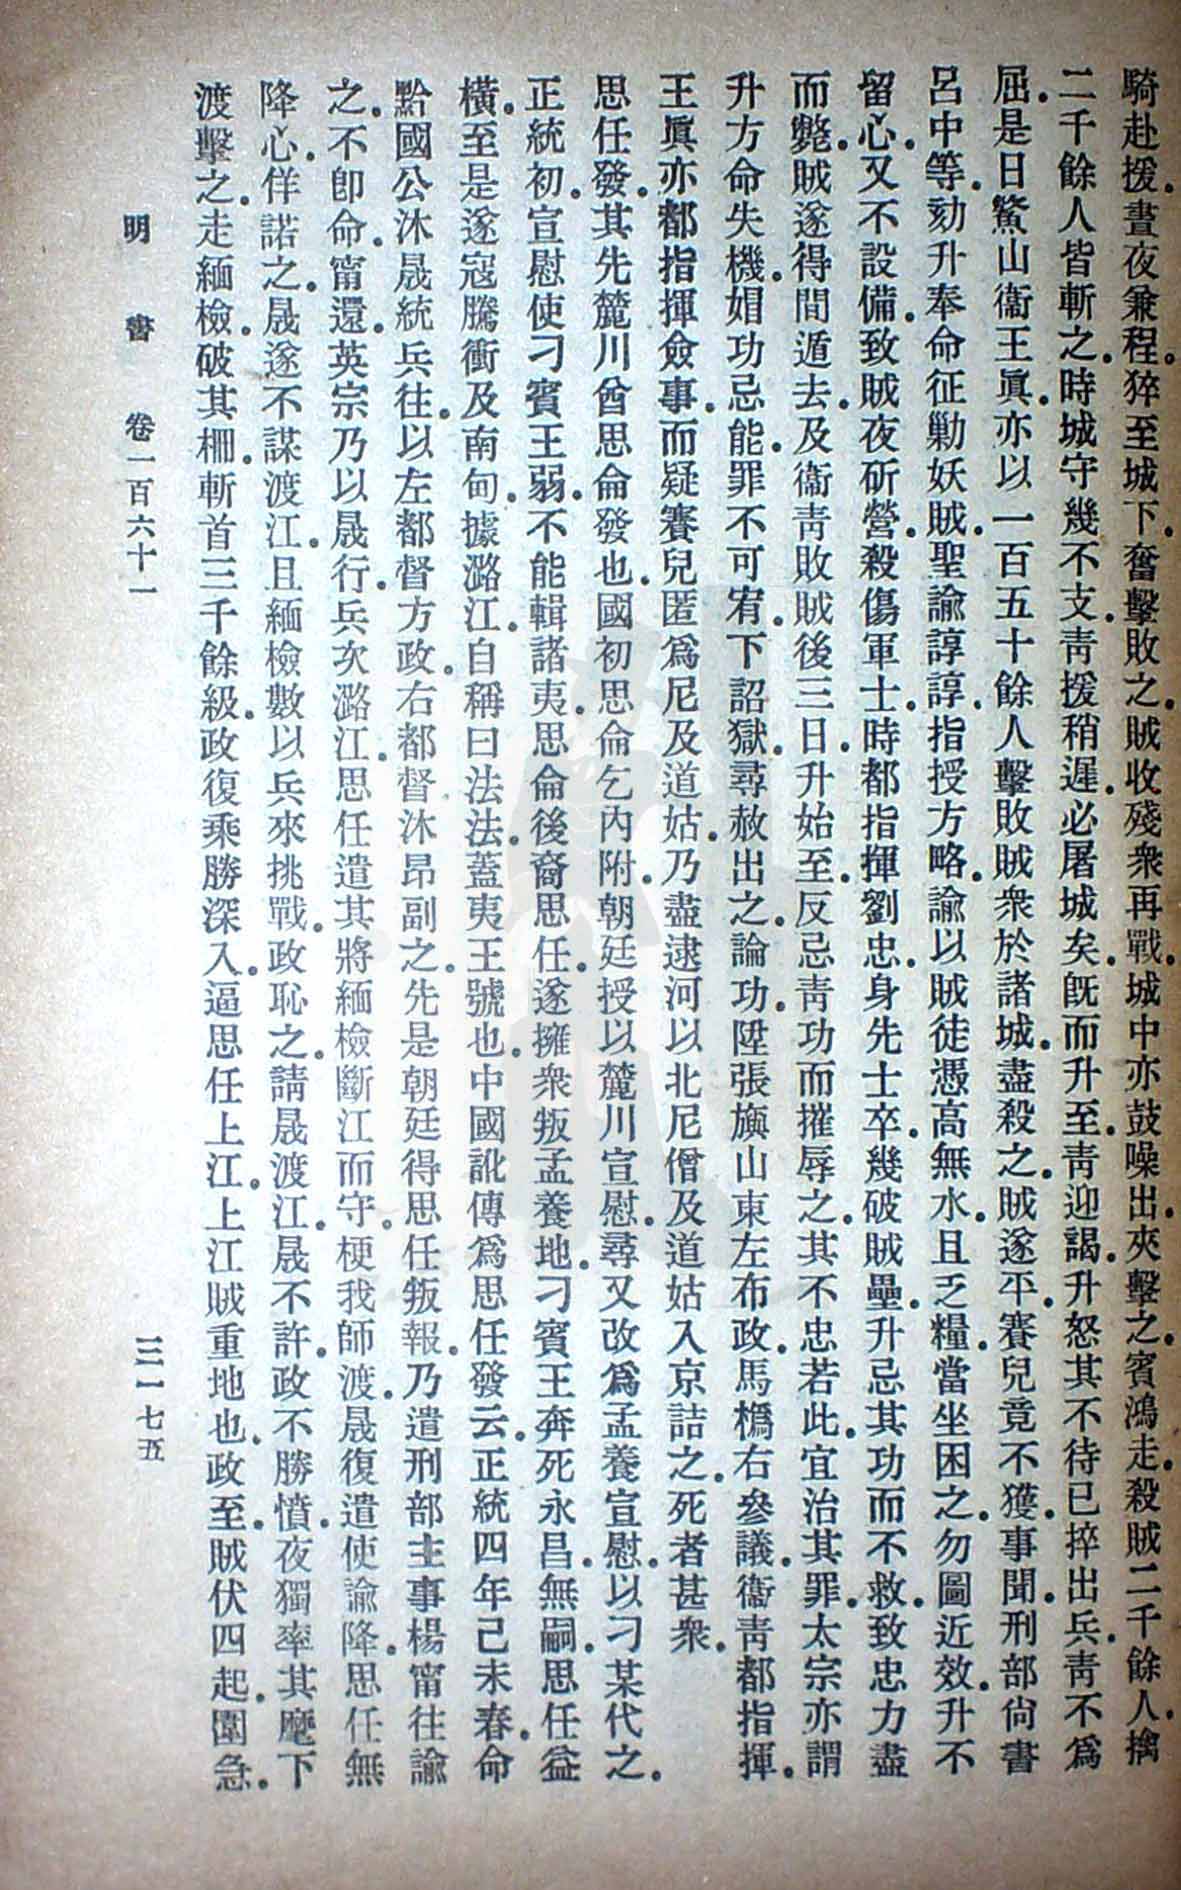 騎赴援。晝夜兼程。猝至城下。奮擊敗之。賊收殘衆再戰。城中亦鼓噪出夾擊之。賓鴻走。殺賊二千餘人。擒
二千餘人。皆斬之。時城守幾不支。靑援稍遲。必屠城矣。旣而升至。靑迎謁。升怒其不待己。捽出兵。靑不爲
屈。是日鰲山衞王眞。亦以一百五十餘人擊敗賊衆於諸城。盡殺之。賊遂平。賽兒竟不獲。事聞。刑部尙書
呂中等。劾升奉命征勦妖賊。聖諭諄諄。指授方略。諭以賊徒憑高無水。且乏糧。當坐困之。勿圖近效。升不
留心。又不設備。致賊夜斫營。殺傷軍士。時都指揮劉忠。身先士卒。幾破賊壘。升忌其功而不救。致忠力盡
而斃。賊遂得間遁去。及衞靑敗賊後三日。升始至。反忌靑功而摧辱之。其不忠若此。宜治其罪。太宗亦謂
升方命失機。娼功忌能。罪不可宥。下詔獄。尋赦出之。論功。陞張旟山東左布政。馬橋右參議。衞靑都指揮。
王眞亦都指揮僉事。而疑賽兒匿爲尼及道姑。乃盡逮河以北尼僧及道姑入京詰之。死者甚衆。
思任發。其先麓川酋思侖發也。國初思侖乞內附。朝廷授以麓川宣慰。尋又改爲孟養宣慰。以刁某代之。
正統初。宣慰使刁賓王弱。不能輯諸夷。思侖後裔思任。遂擁衆叛孟養地。刁賓王奔死永昌。無嗣。思任益
橫。至是遂寇騰衝及南甸。據潞江。自稱曰法。法。蓋夷王號也。中國訛傳爲思任發云。正統四年己未春。命
黔國公沐晟統兵往。以左都督方政。右都督沐昂副之。先是朝廷得思任叛報。乃遣刑部主事楊甯往諭
之。不卽命。甯還。英宗乃以晟行。兵次潞江。思任遣其將緬檢斷江而守。梗我師渡。晟復遣使諭降。思任無
降心。佯諾之。晟遂不謀渡江。且緬檢數以兵來挑戰。政恥之。請晟渡江。晟不許。政不勝憤。夜獨率其麾下
渡擊之。走緬檢。破其柵。斬首三千餘級。政復乘勝深入。逼思任上江。上江賊重地也。政至。賊伏四起。圍急。
明書 卷一百六十一 三一七五